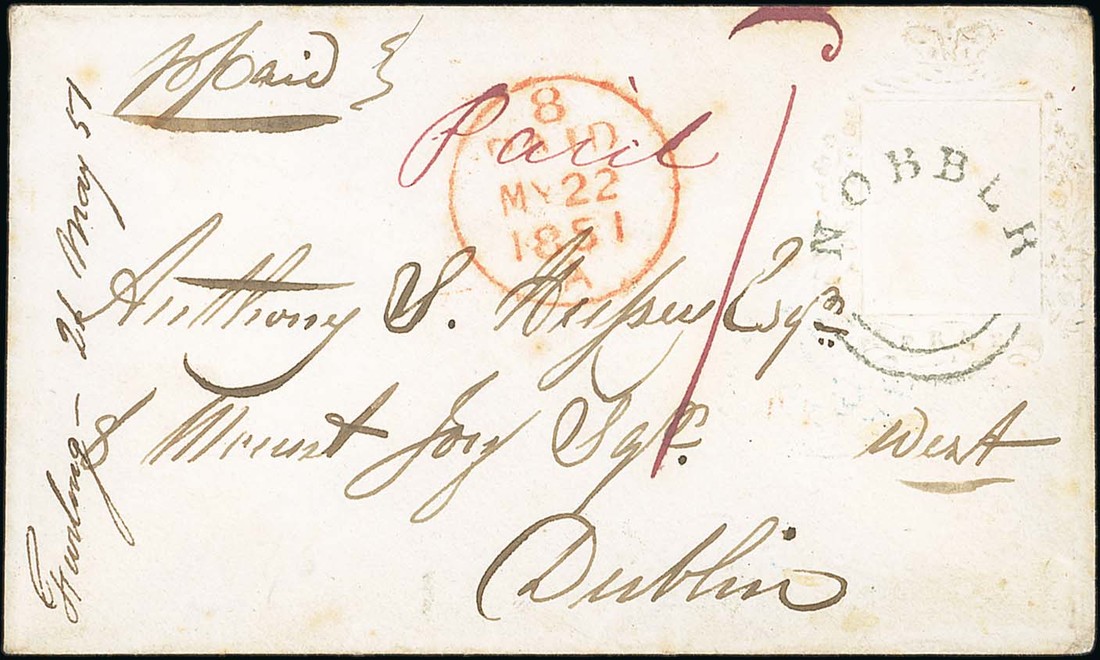 Paid
Paid
8
PAID
MY 22
1851
A
NOBBER
Anthony S. Hussey Esqr
8 Mount Joy Sqr. West
Dublin
21 May 51